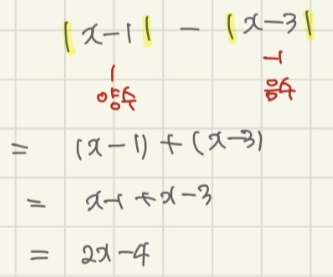 |x-1| - |x-3|
1 -1
양수 음수
= (x-1) + (x-3)
= x-1+x-3
= 2x-4